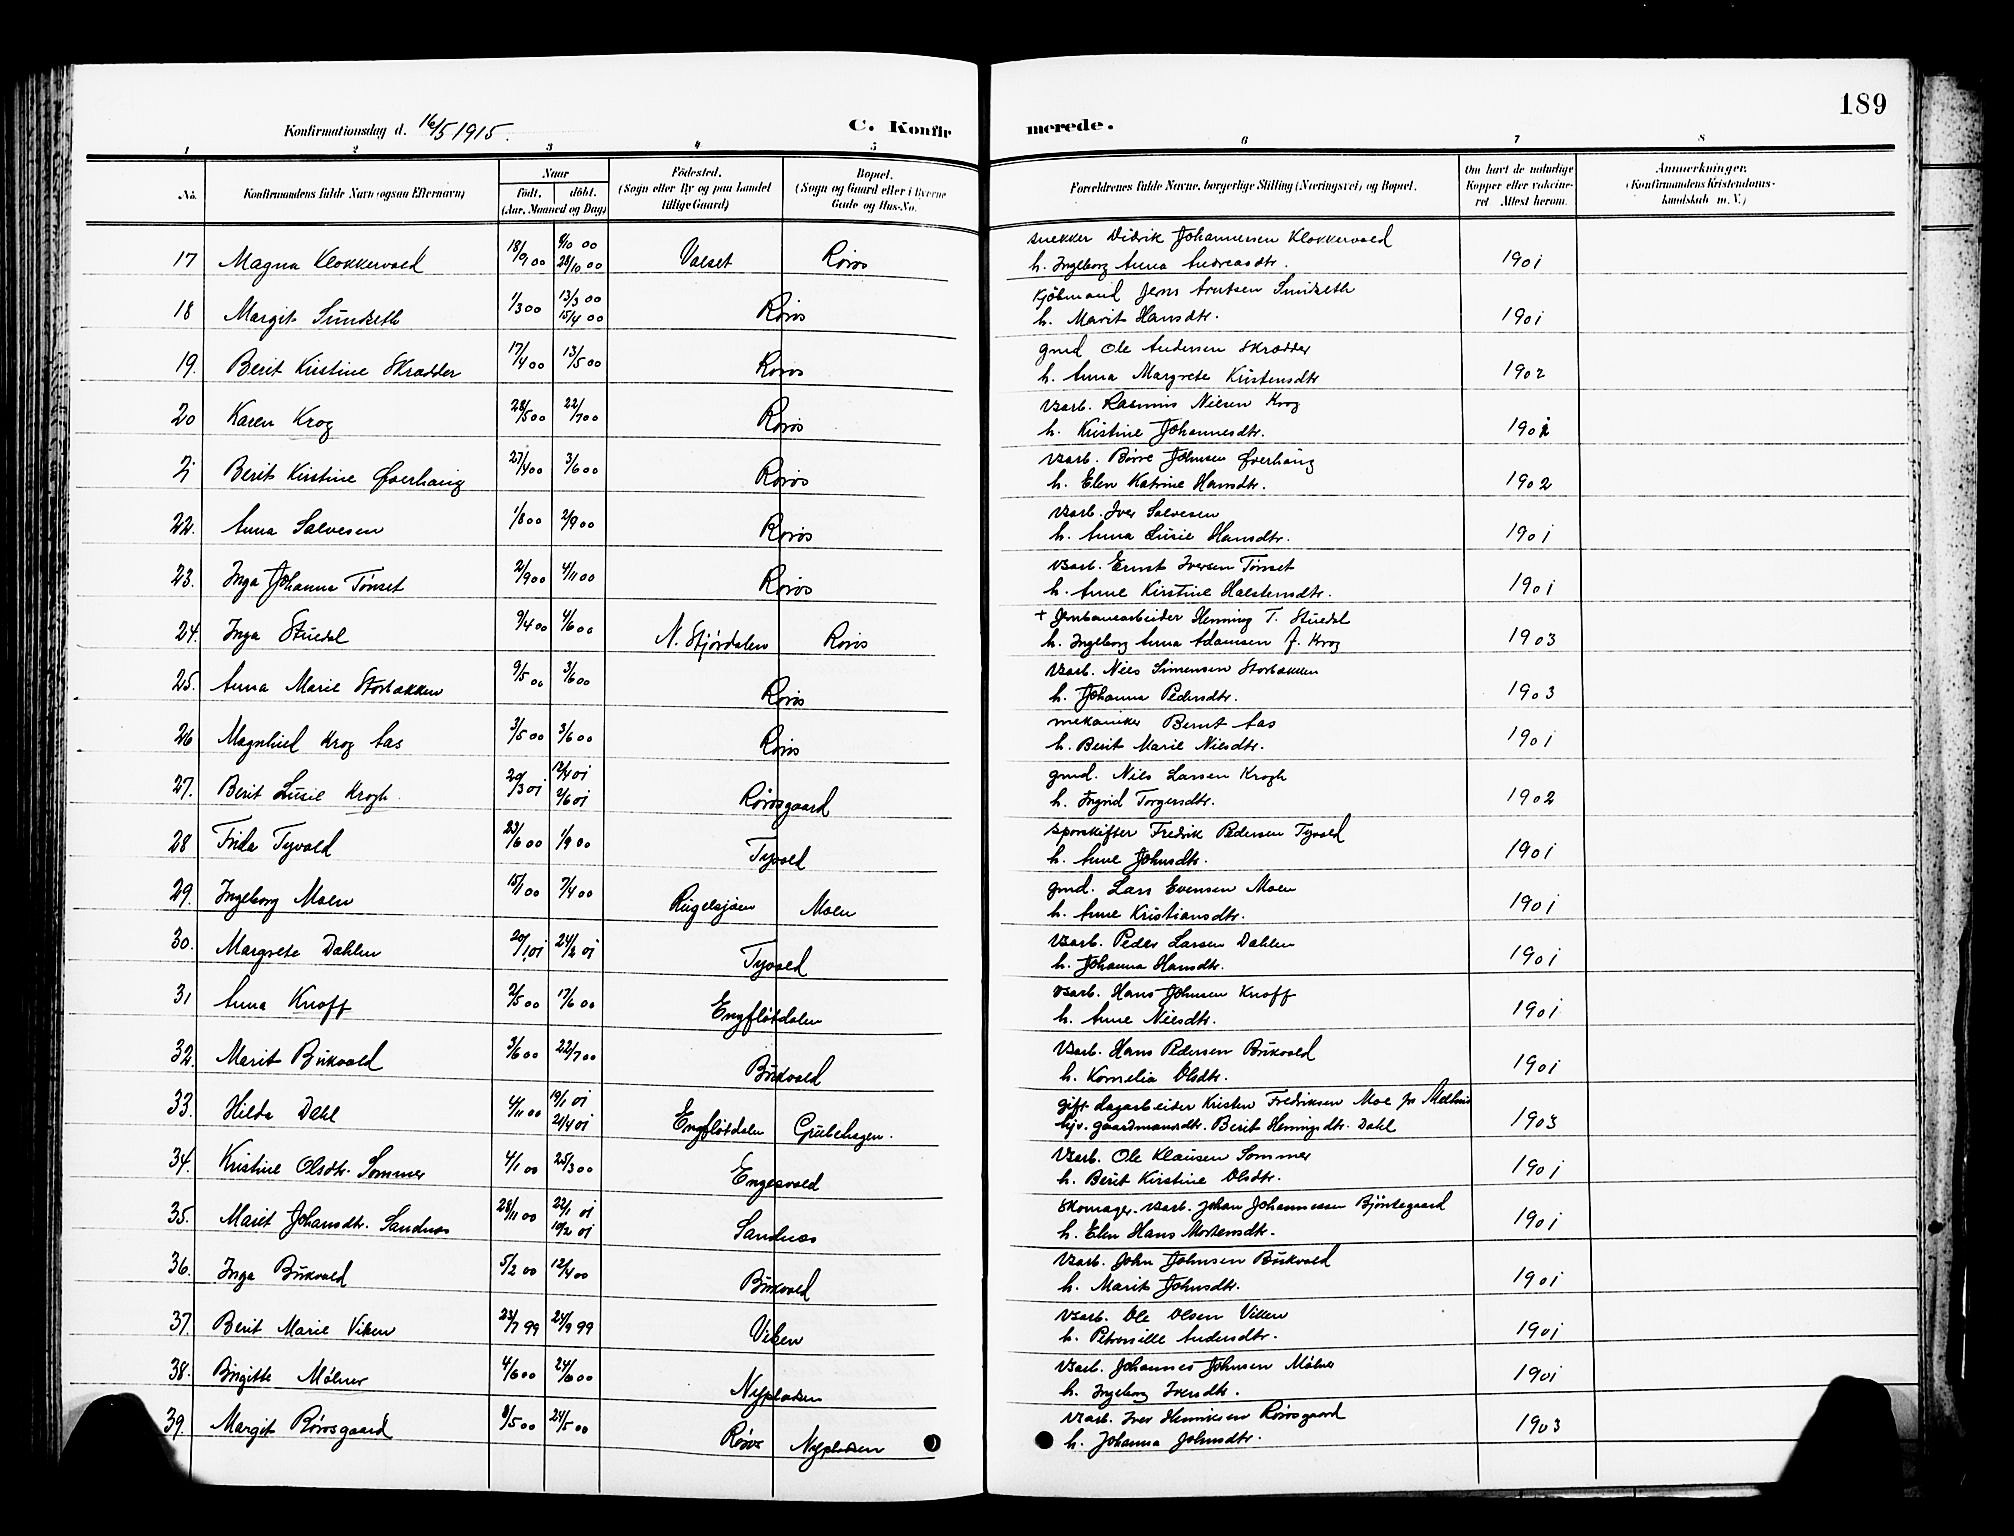 189
Konfirmationsdag d. 16/5 1915.
C. Konfirmerede.
1 2 3 4 5 6 7 8
No.
Konfirmandens fulde Navn (ogsaa Efternavn)
Naar
født, døbt.
(Aar, Maaned og Dag)
Fødested.
(Sogn eller By og paa Landet
tillige Gaard)
Bopæl.
(Sogn og Gaard eller i Byerne
Gade og Hus-No.
Forældrenes fulde Navne, borgerlige Stilling (Næringsvei) og Bopæl.
Om havt de naturlige
Kopper eller vakcine-
ret Attest herom.
Anmærkninger.
(Konfirmandens Kristendoms-
kundskab m. V.)
17 Magna Klokkervold 18/9 00 9/10 00 28/10 00 Valset Røros snekker Didrik Johannessen Klokkervold
h. Ingeborg Anna Andreasdtr. 1901
18 Margit Sundseth 1/3 00 13/3 00 15/4 00 Røros Kjøbmand Jens Arntsen Sundseth
h. Marit Hansdtr. 1901
19. Berit Kirstine Skrædder 17/4 00 13/5 00 Røros gmd Ole Andersen Skrædder
h. Anna Margrete Kristensdtr 1902
20 Karen Krog 28/5 00 22/7 00 Røros Varb. Rasmus Nilsen Krog
h. Kristine Johannesdtr. 1901
21 Berit Kirstine Øverhaug 27/4 00 3/6 00 Røros Varb. Børre Johnsen Øverhaug
h. Elen Katrine Hansdtr. 1902
22. Anna Salvesen 1/8 00 2/9 00 Røros Varb. Iver Salvesen
h. Anna Lusie Hansdtr. 1901
23. Inga Johanna Tønset 2/9 00 4/11 00 Røros Varb. Ernst Iversen Tønset
h. Anne Kirstine Halstensdtr. 1901
24. Inga Stuedal 9/4 00 4/6 00 N. Stjørdalen Røros + Jernbanearbeider Henning T. Stuedal
h. Ingeborg Anna Adamsen f. Krog 1903
25. Anna Marie Storbækken 9/5 00 3/6 00 Røros Varb. Niels Simensen Storbækken
h. Johanna Pedersdtr. 1903
26 Magnhild Krog Aas 3/5 00 3/6 00 Røros mekaniker Bernt Aas
h. Berit Marie Nielsdtr. 1901
27. Berit Lusie Krogh. 29/3 01 12/4 01 2/6 01 Rørosgaard gmd. Nils Larsen Krogh
h. Ingrid Torgersdtr. 1902
28 Frida Tyvold 23/6 00 1/9 00 Tyvold Sporskifter Fredrik Pedersen Tyvold
h. Anne Johnsdtr. 1901
29. Ingeborg Moen 15/1 00 7/4 00 Rugelsjøen Moen gmd. Lars Evensen Moen
h. Anne Kristiansdtr. 1901
30. Margrete Dahlen 20/1 01 24/2 01 Tyvold Varb. Peder Larsen Dahlen
h. Johanna Hansdtr. 1901
31 Anna Knoff 2/5 00 17/6 00 Engfløtdalen Varb. Hans Johnsen Knoff
h. Anne Nielsdtr. 1901
32. Marit Bukvold 3/6 00 22/7 00 Bukvold Varb. Hans Pedersen Bukvold
h. Kornelia Olsdtr. 1901
33. Hilda Dahl 4/11 00 19/1 01 21/4 01 Engfløtdalen Grubehagen. gift dagarbeider Kristen Fredriksen Moe fra Melhus
hjv. gaardmandsdtr. Berit Henningsdtr. Dahl 1903
34. Kristine Olsdtr. Sommer 4/1 00 25/3 00 Engesvold Varb. Ole Klausen Sommer
h. Berit Kirstine Olsdtr. 1901
35. Marit Johansdtr. Sandnæs 28/11 00 22/1 01 10/2 01 Sandnæs Skomager. Varb. Johan Johannessen Bjøntegaard
h. Elen Hans Mortensdtr. 1901
36. Inga Bukvold 5/2 00 12/4 00 Bukvold Varb. John Johnsen Bukvold
h. Marit Johnsdtr. 1901
37. Berit Marie Viken 23/7 99 24/9 99 Viken Varb. Ole Olsen Viken
h. Petronille Andersdtr. 1901
38. Birgitte Mølner 4/6 00 24/6 00 Nyplassen Varb. Johannes Johnsen Mølner
h. Ingeborg Iversdtr. 1901
39. Margit Rørosgaard 9/5 00 24/5 00 Røros Nyplassen Varb. Iver Henriksen Rørosgaard
h. Johanna Johnsdtr. 1903